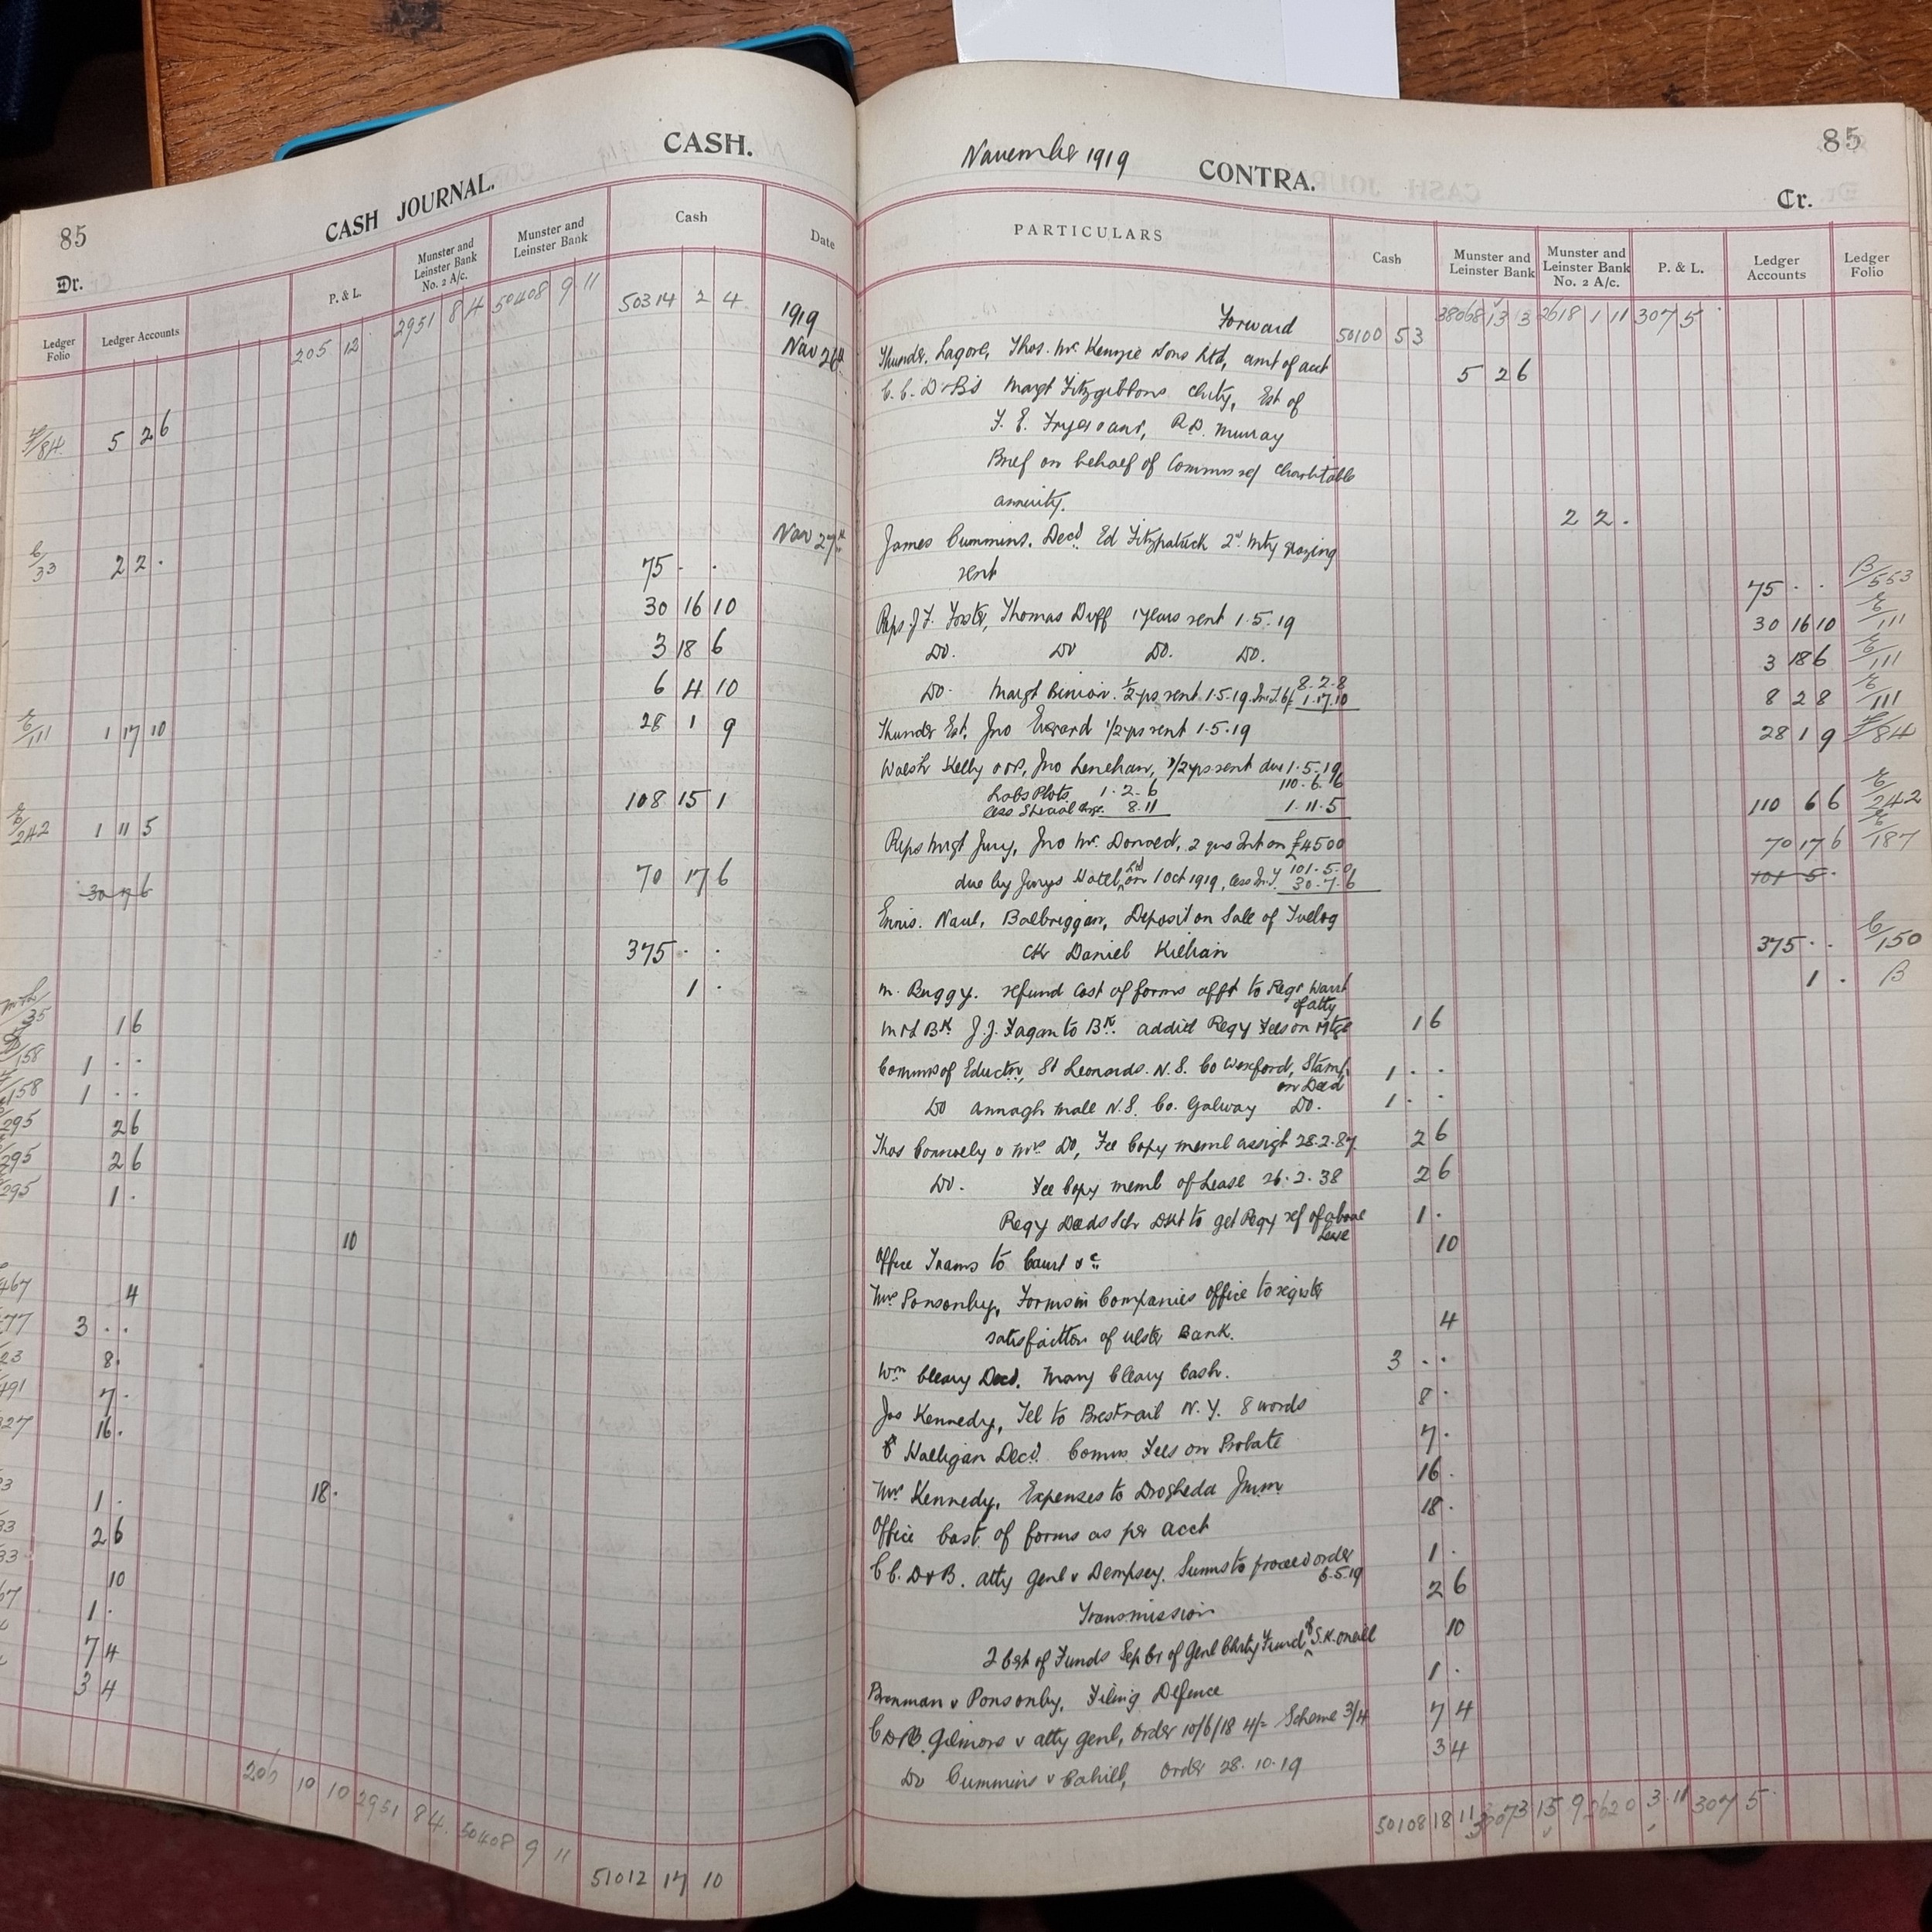 85
CASH JOURNAL.
CASH.
Dr.
Ledger Folio
Ledger Accounts
P. & L.
Munster and Leinster Bank No. 2 A/c.
Munster and Leinster Bank
Cash
Date
205 12
2951 8 4
50408 9 11
50314 2 4
1919
Nov 26th
/84 5 2 6
Nov 27th
/33 2 2 .
75 . .
30 16 10
3 18 6
6 4 10
/111 1 17 10
28 1 9
108 15 1
/242 1 11 5
70 17 6
30 7 6
375 . .
1 .
35 1 6
/158 1 . .
/158 1 . .
295 2 6
295 2 6
295 1 .
10
467 4
77 3 . .
23 8 .
491 7 .
327 16 .
18 .
1 .
2 6
10
1 .
7 4
3 4
206 10 10
2951 8 4
50408 9 11
51012 17 10
November 1919
CONTRA.
85
Cr.
PARTICULARS
Cash
Munster and Leinster Bank
Munster and Leinster Bank No. 2 A/c.
P. & L.
Ledger Accounts
Ledger Folio
Forward 50100 5 3 38068 13 3 2618 1 11 307 5
Thunder, Lagore, Thos. McKenzie Sons Ltd, amt of acct 5 2 6
C. C. D & B's Margt Fitzgibbons Chty, Est of
F. E. Fryer & anr, R.D. Murray
Brief on behalf of Commrs re/ Charitable
annuity. 2 2 .
James Cummins. Decd. Ed Fitzpatrick 2d. mty grazing
rent 75 . . B/553
Reps. J F. Foster, Thomas Duff 1 years rent 1.5.19 30 16 10 /111
Do. Do Do. Do. 3 18 6 /111
Do. Margt Binion. 1/2 yrs rent 1.5.19. 8.2.8 1.17.10 8 2 8 /111
Thunder Est. Jno Everard 1/2 yrs rent 1.5.19 28 1 9 /84
Walsh Kelly & ors, Jno Lenehan, 1/2 yrs rent due 1.5.19
Labs Plots 1.2.6 110.6.6
less 8.11 1.11.5 110 6 6 /242
Reps Mrgt Jury, Jno Mc. Donald, 2 qrs Int on £4500 70 17 6 /187
due by Jurys Hotel Ltd on 1 Oct 1919, less 101.5.0 30.7.6 101 5 .
Ennis. Naul, Balbriggan, Deposit on Sale of
Daniel Killian 375 . . /150
M. Ruggy. refund cost of forms afft to Regr Warrt of atty 1 . B
M & L Bk. J.J. Fagan to Bk. addid Regy Fees on Mtge 1 6
Comms of Eductn, St Leonards. N.S. Co Wexford, Stamp on Deed 1 . .
Do Annagh Male N.S. Co. Galway Do. 1 . .
Thos Connolly & Mrs Do, Fee Copy meml assigt 28.2.87 2 6
Do. Fee Copy meml of Lease 26.2.38 2 6
Regy Deeds Sch Dkt to get Regy ref of above Lease 1 .
Office Trams to Court &c. 10
Mrs Ponsonby, Forms in Companies Office to register
satisfaction of Ulster Bank. 4
Wm Cleary Decd. Mary Cleary Cash. 3 . .
Jas Kennedy, Tel to N.Y. 8 words 8 .
Halligan Decd. Comm Fees on Probate 7 .
Mr Kennedy, Expenses to Drogheda 16 .
Office Cost of forms as per acct 18 .
C C. D & B. Atty Genl v Dempsey. Sumns to proceed order 6.5.19 1 .
Transmission 2 6
2 Cert of Funds Sep Cr of Genl Charty Fund of S.K. ONeill 10
Brennan v Ponsonby. Filing Defence 1 .
C D & B. Gilmore v Atty Genl, Order 10/6/18 4/= Scheme 3/4 7 4
Do Cummins v Cahill, Order 28.10.19 3 4
50108 18 11 38073 15 9 2620 3 11 307 5